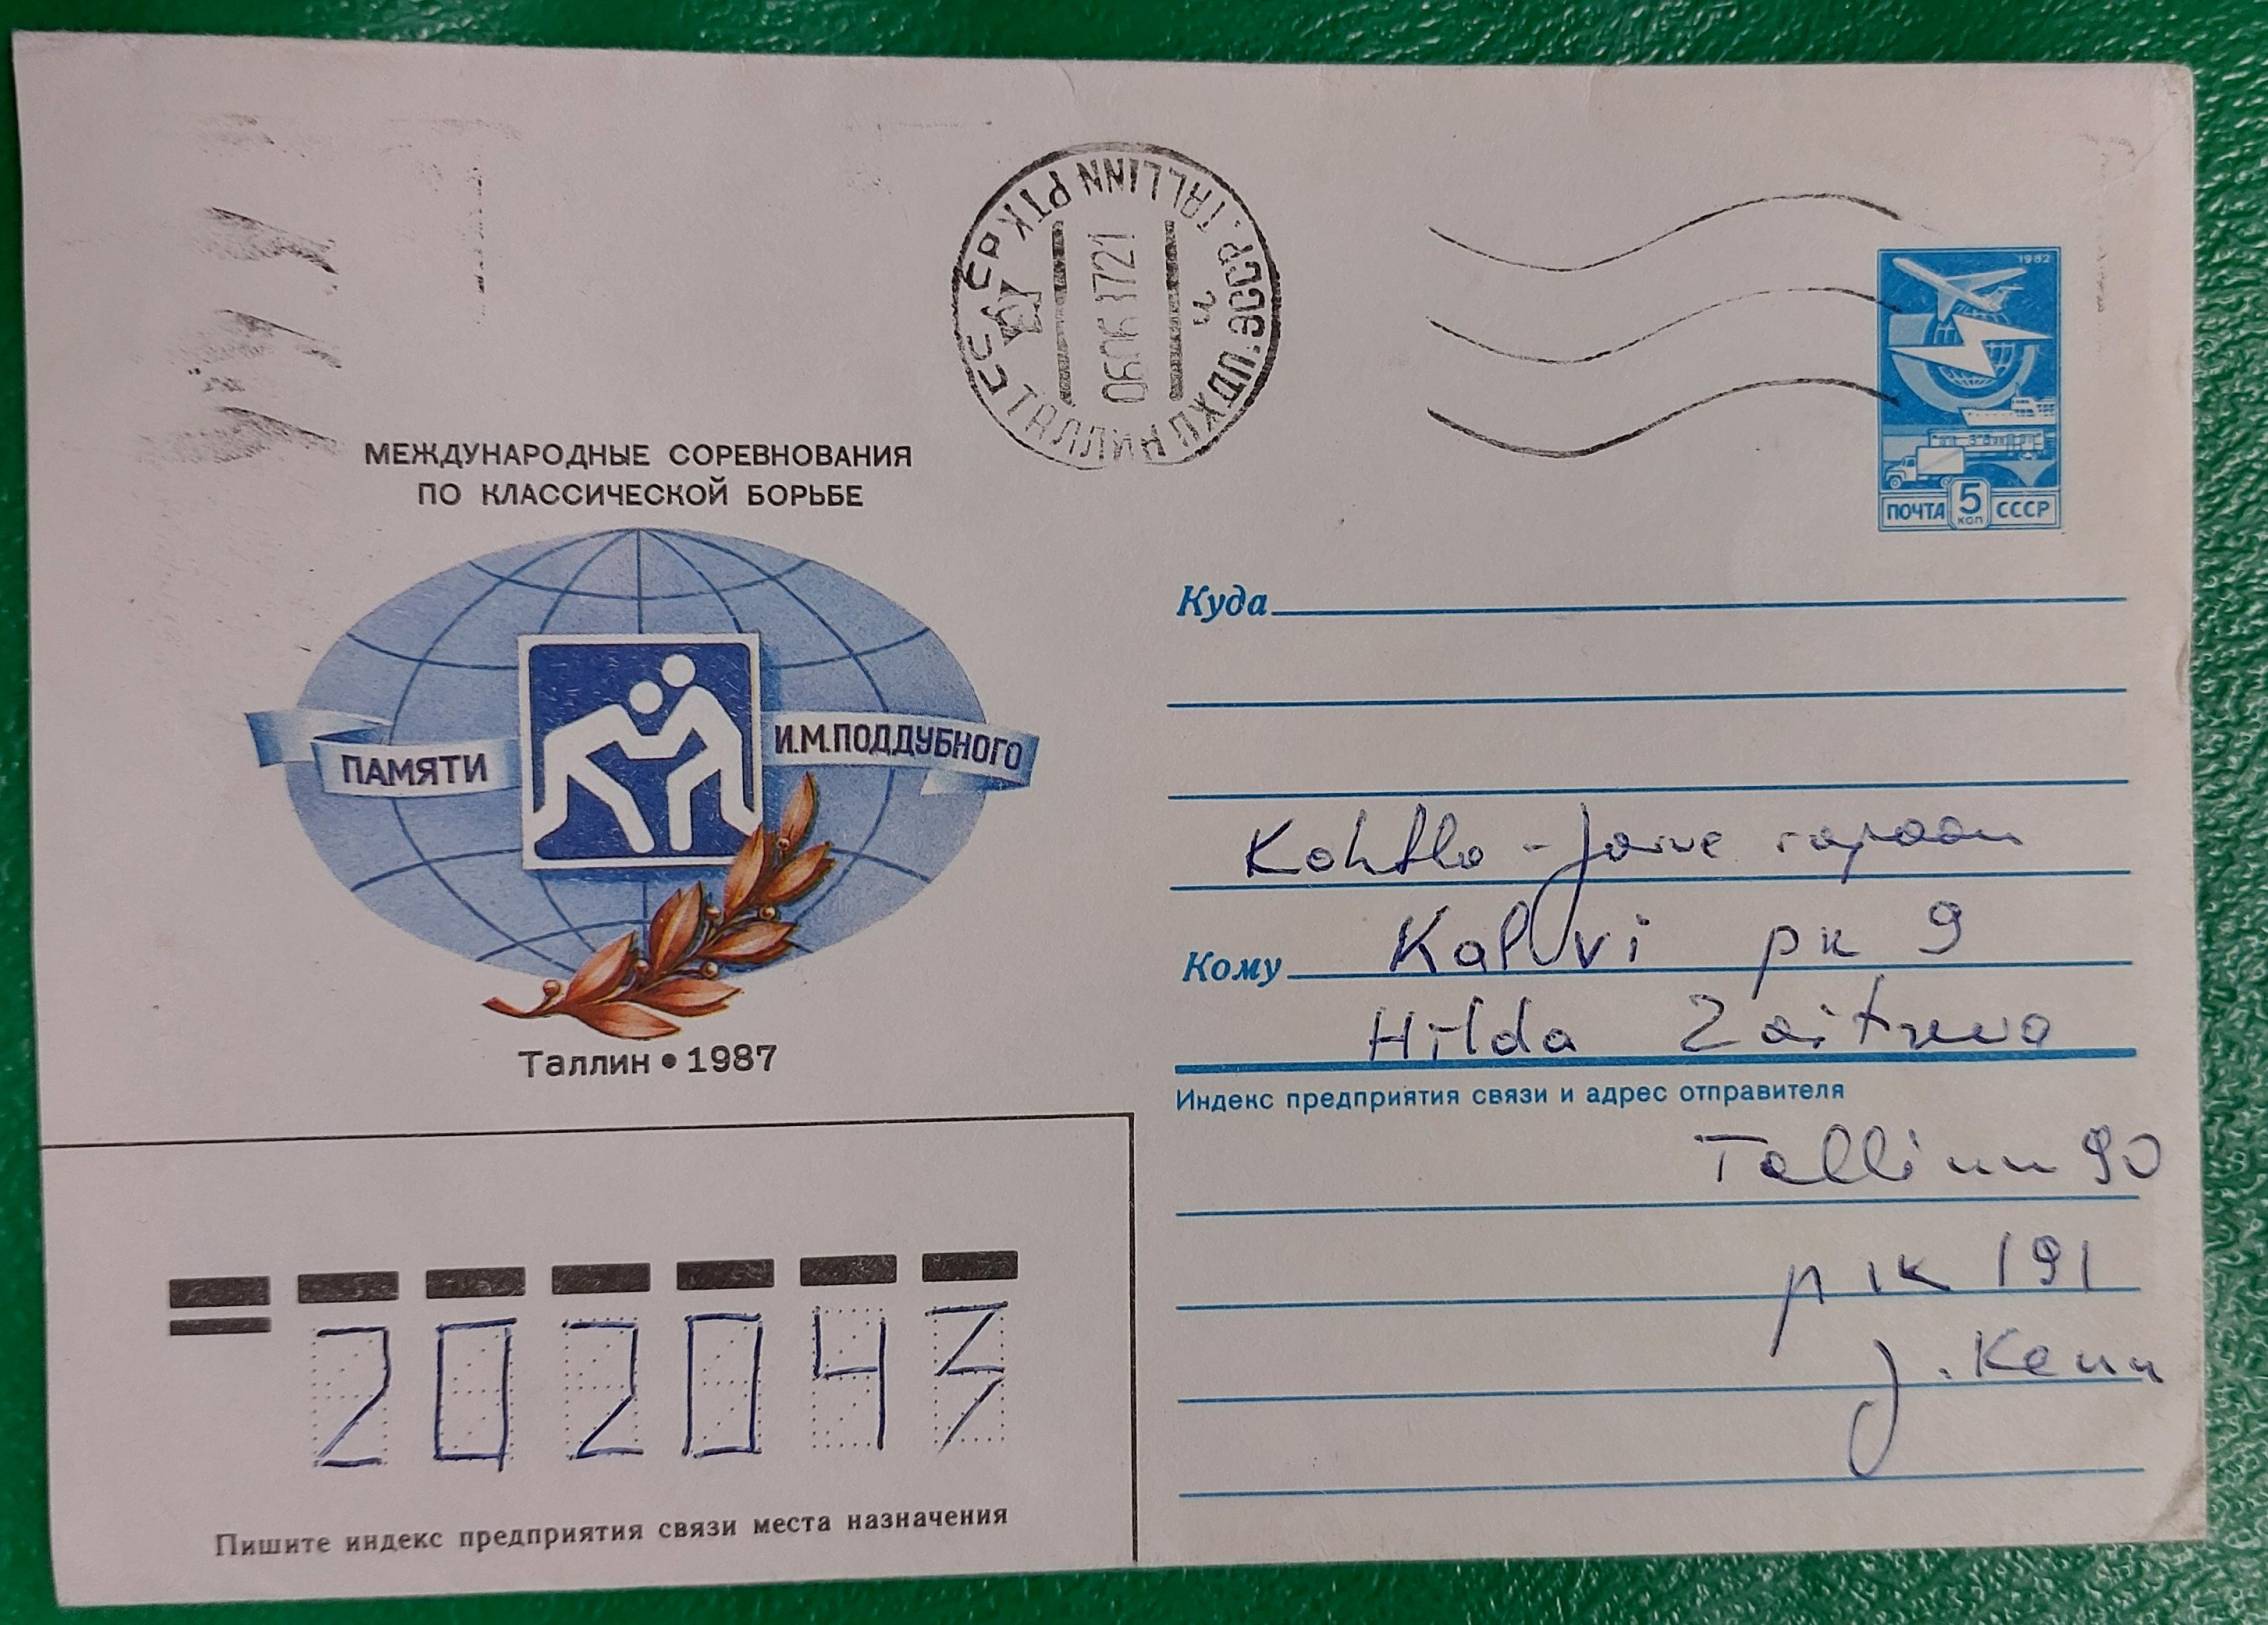 TALLINN PTK
ТАЛЛИН
1982
ПОЧТА 5 КОП СССР
МЕЖДУНАРОДНЫЕ СОРЕВНОВАНИЯ
ПО КЛАССИЧЕСКОЙ БОРЬБЕ
ПАМЯТИ И.М.ПОДДУБНОГО
Таллин • 1987
Куда
Kohtla-Järve rajoon
Кому Kalvi pk 9
Hilda Zaitseva
Индекс предприятия связи и адрес отправителя
Tallinn 90
pk 191
J. Kenn
202043
Пишите индекс предприятия связи места назначения